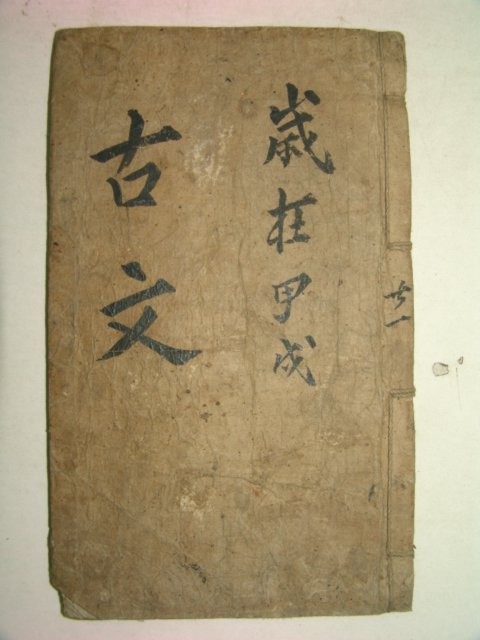 共一
歲在甲戌
古文